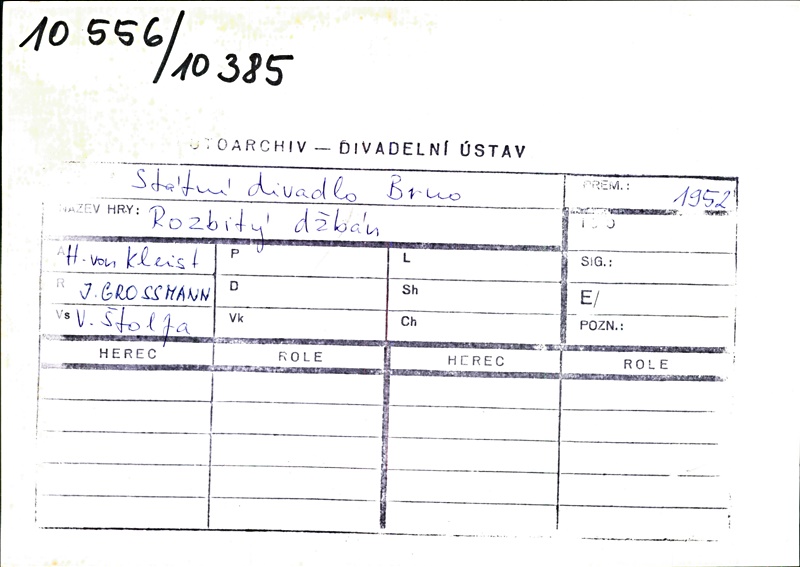 10 556/
10 385
OTOARCHIV — DIVADELNÍ ÚSTAV
Státní divadlo Brno
PREM.: 1952
NÁZEV HRY: Rozbitý džbán
A H. von Kleist
P
L
SIG.:
R J. GROSSMANN
D
Sh
E/
Vs V. Štolfa
Vk
Ch
POZN.:
HEREC ROLE HEREC ROLE